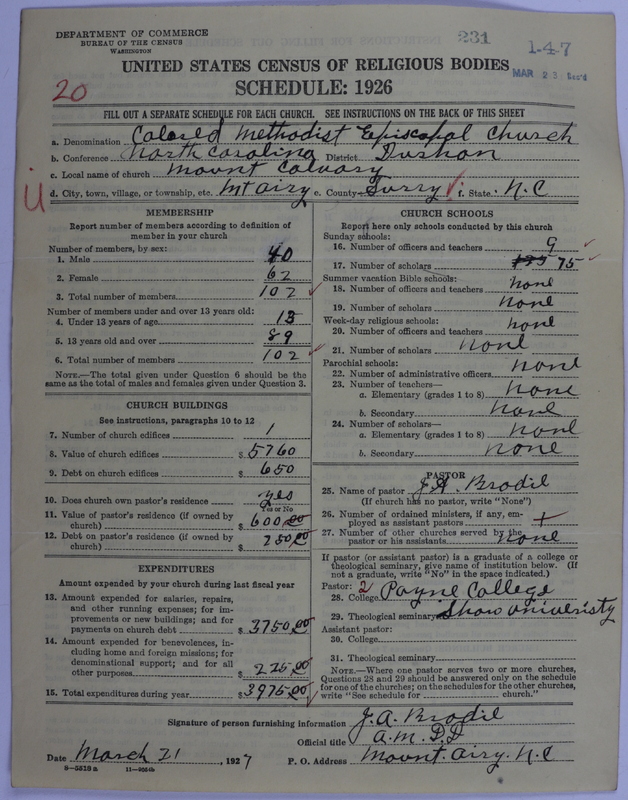 DEPARTMENT OF COMMERCE
BUREAU OF THE CENSUS
WASHINGTON
231
1-4-7
MAR 23 Rec'd
UNITED STATES CENSUS OF RELIGIOUS BODIES
SCHEDULE: 1926
20
FILL OUT A SEPARATE SCHEDULE FOR EACH CHURCH. SEE INSTRUCTIONS ON THE BACK OF THIS SHEET
a. Denomination Colored Methodist Episcopal Church
b. Conference North Carolina District Durham
c. Local name of church Mount Calvary
d. City, town, village, or township, etc. Mt airy e. County Surry f. State N.C
MEMBERSHIP
Report number of members according to definition of
member in your church
Number of members, by sex:
1. Male 40
2. Female 62
3. Total number of members 102
Number of members under and over 13 years old:
4. Under 13 years of age 13
5. 13 years old and over 89
6. Total number of members 102
NOTE.—The total given under Question 6 should be the
same as the total of males and females given under Question 3.
CHURCH BUILDINGS
See instructions, paragraphs 10 to 12
7. Number of church edifices 1
8. Value of church edifices $5760
9. Debt on church edifices $650
10. Does church own pastor's residence yes
Yes or No
11. Value of pastor's residence (if owned by
church) $600.00
12. Debt on pastor's residence (if owned by
church) $250.00
EXPENDITURES
Amount expended by your church during last fiscal year
13. Amount expended for salaries, repairs,
and other running expenses; for im-
provements or new buildings; and for
payments on church debt $3750.00
14. Amount expended for benevolences, in-
cluding home and foreign missions; for
denominational support; and for all
other purposes $225.00
15. Total expenditures during year $3975.00
CHURCH SCHOOLS
Report here only schools conducted by this church
Sunday schools:
16. Number of officers and teachers 9
17. Number of scholars 75
Summer vacation Bible schools:
18. Number of officers and teachers none
19. Number of scholars none
Week-day religious schools:
20. Number of officers and teachers none
21. Number of scholars none
Parochial schools:
22. Number of administrative officers none
23. Number of teachers—
a. Elementary (grades 1 to 8) none
b. Secondary none
24. Number of scholars—
a. Elementary (grades 1 to 8) none
b. Secondary none
PASTOR
25. Name of pastor J.A. Brodil
(If church has no pastor, write "None")
26. Number of ordained ministers, if any, em-
ployed as assistant pastors
27. Number of other churches served by the
pastor or his assistants none
If pastor (or assistant pastor) is a graduate of a college or
theological seminary, give name of institution below. (If
not a graduate, write "No" in the space indicated.)
Pastor: 2
28. College Payne College
29. Theological seminary Show univeristy
Assistant pastor:
30. College
31. Theological seminary
NOTE.—Where one pastor serves two or more churches,
Questions 28 and 29 should be answered only on the schedule
for one of the churches; on the schedules for the other churches,
write "See schedule for church."
Signature of person furnishing information J.A. Brodil
Official title A.M. D.D
Date March 21, 1927 P. O. Address Mount. Airy. N.C
8—5513a